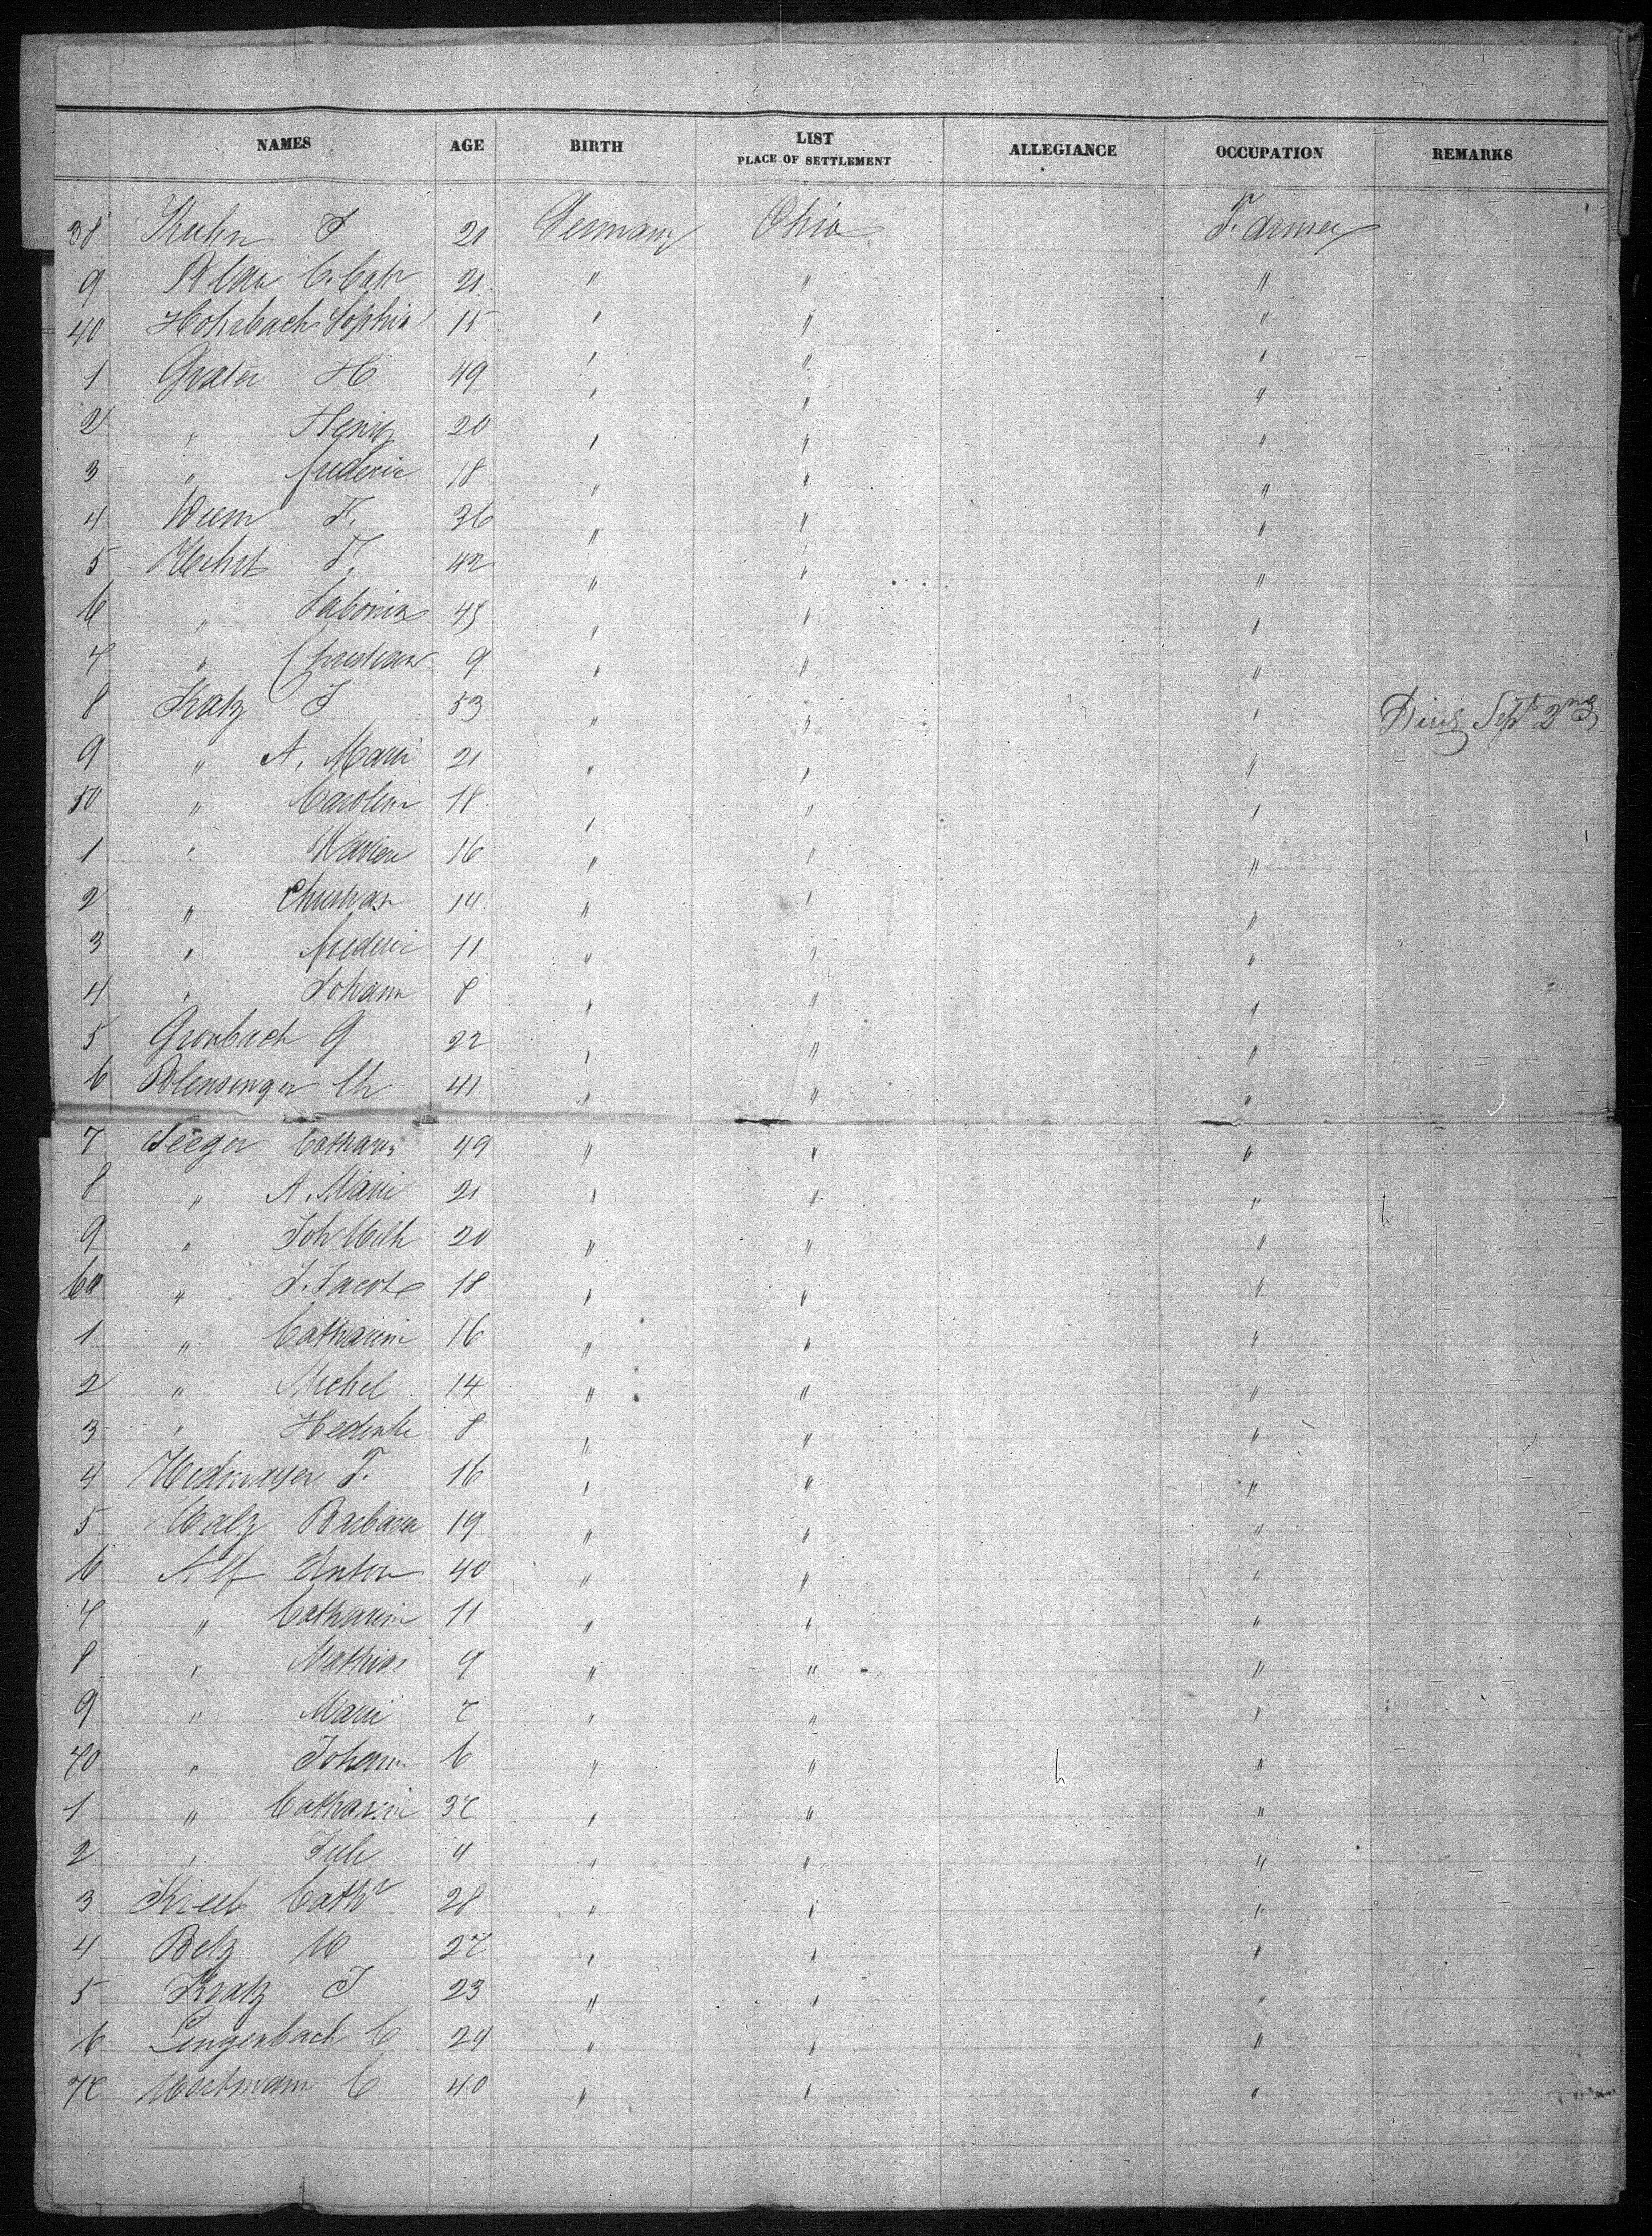 NAMES AGE BIRTH LIST PLACE OF SETTLEMENT ALLEGIANCE OCCUPATION REMARKS
38 Kuhn J 21 Germany Ohio Farmer
9 C. Cath 21 " " "
40 Hohrbach Sophia 15 " " "
1 Grater H 49 " " "
2 " Henry 20 " " "
3 " frederic 18 " " "
4 F. 36 " " "
5 F. 42 " " "
6 " 45 " " "
7 " Christian 9 " " "
8 Kratz J 53 " " " Died Sept 2nd
9 " A. Marie 21 " " "
50 " Carolin 18 " " "
1 " 16 " " "
2 " Christian 14 " " "
3 " frederic 11 " " "
4 " Johann 8 " " "
5 Gronbach G 22 " " "
6 Blensinger Ch 41 " " "
7 Seeger Cathari 49 " " "
8 " A. Marie 21 " " "
9 " Joh Wilh 20 " " "
60 " J. Jacob 18 " " "
1 " Catharin 16 " " "
2 " Michel 14 " " "
3 " 8 " " "
4 F. 16 " " "
5 Walz Barbara 19 " " "
6 Alf Anton 40 " " "
7 " Catharin 11 " " "
8 " Mathias 9 " " "
9 " Marie 7 " " "
70 " Johann 6 " " "
1 " Catharin 37 " " "
2 " Juli 4 " " "
3 Kreeb Cathr 28 " " "
4 Betz W 27 " " "
5 Kratz J 23 " " "
6 Lingenbach C 24 " " "
77 Wortmann C 40 " " "